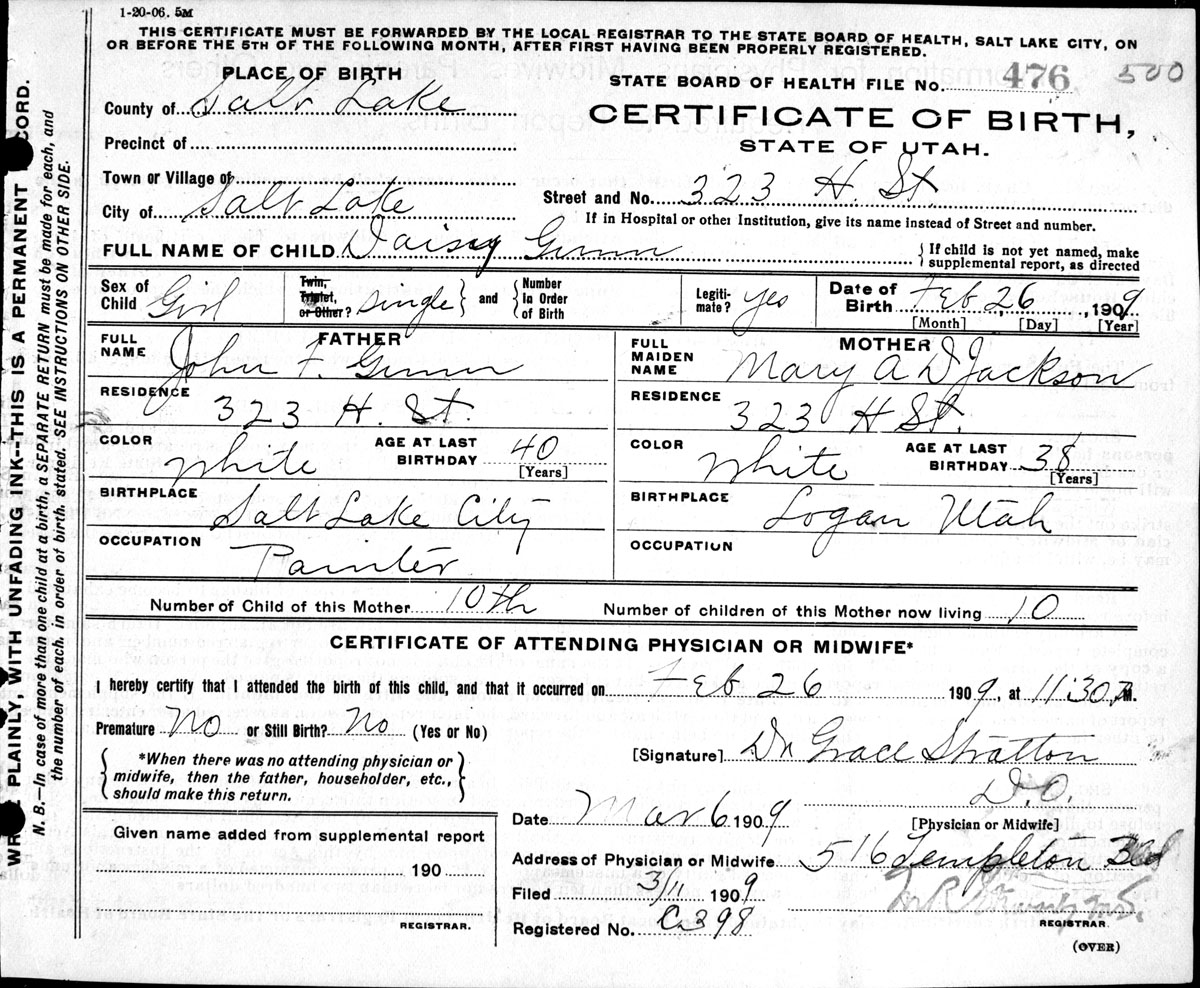 1-20-06. 5M
THIS CERTIFICATE MUST BE FORWARDED BY THE LOCAL REGISTRAR TO THE STATE BOARD OF HEALTH, SALT LAKE CITY, ON
OR BEFORE THE 5TH OF THE FOLLOWING MONTH, AFTER FIRST HAVING BEEN PROPERLY REGISTERED.
PLACE OF BIRTH
County of Salt Lake
Precinct of
Town or Village of
City of Salt Lake
STATE BOARD OF HEALTH FILE No. 476 500
CERTIFICATE OF BIRTH,
STATE OF UTAH.
Street and No. 323 H. St.
If in Hospital or other Institution, give its name instead of Street and number.
FULL NAME OF CHILD Daisy Gunn
If child is not yet named, make
supplemental report, as directed
Sex of Child Girl
Twin, Triplet, or Other? Single and Number In Order of Birth
Legiti-mate? yes
Date of Birth Feb 26, 1909
[Month] [Day] [Year]
FATHER
FULL NAME John F. Gunn
RESIDENCE 323 H. St.
COLOR White AGE AT LAST BIRTHDAY 40 [Years]
BIRTHPLACE Salt Lake City
OCCUPATION Painter
MOTHER
FULL MAIDEN NAME Mary A D Jackson
RESIDENCE 323 H St.
COLOR White AGE AT LAST BIRTHDAY 38 [Years]
BIRTHPLACE Logan Utah
OCCUPATION
Number of Child of this Mother 10th Number of children of this Mother now living 10
CERTIFICATE OF ATTENDING PHYSICIAN OR MIDWIFE*
I hereby certify that I attended the birth of this child, and that it occurred on Feb 26 1909, at 11:30 M.
Premature No or Still Birth? No (Yes or No)
*When there was no attending physician or
midwife, then the father, householder, etc.,
should make this return.
[Signature] Dr Grace Stratton
D.O.
[Physician or Midwife]
Date Mar 6 1909
Address of Physician or Midwife 516 Templeton Bld
Filed 3/11 1909
Registered No. C398
REGISTRAR.
(OVER)
Given name added from supplemental report
190
REGISTRAR.
PLAINLY, WITH UNFADING INK--THIS IS A PERMANENT
N. B.—In case of more than one child at a birth, a SEPARATE RETURN must be made for each, and
the number of each, in order of birth, stated. SEE INSTRUCTIONS ON OTHER SIDE.